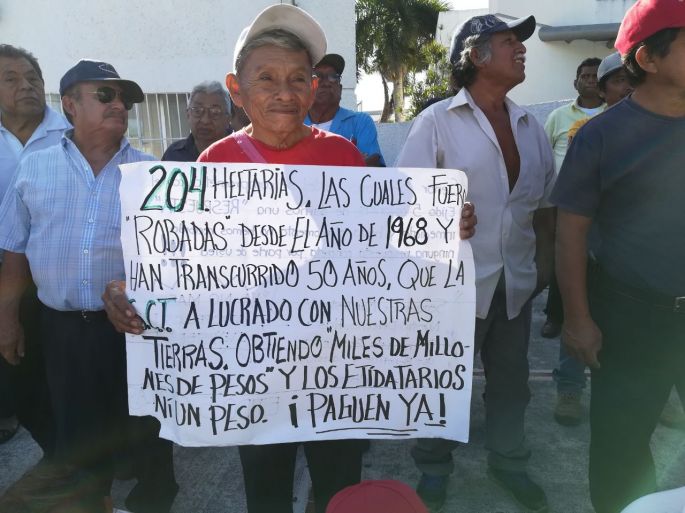 204 HECTARIAS. LAS CUALES FUERON
"ROBADAS" DESDE EL AÑO DE 1968 Y
HAN "TRANSCURRIDO 50 AÑOS, QUE LA
S.C.T. A LUCRADO CON NUESTRAS
TIERRAS. OBTIENDO "MILES DE MILLO-
NES DE PESOS" Y LOS EJIDATARIOS
NI UN PESO. ¡PAGUEN YA!